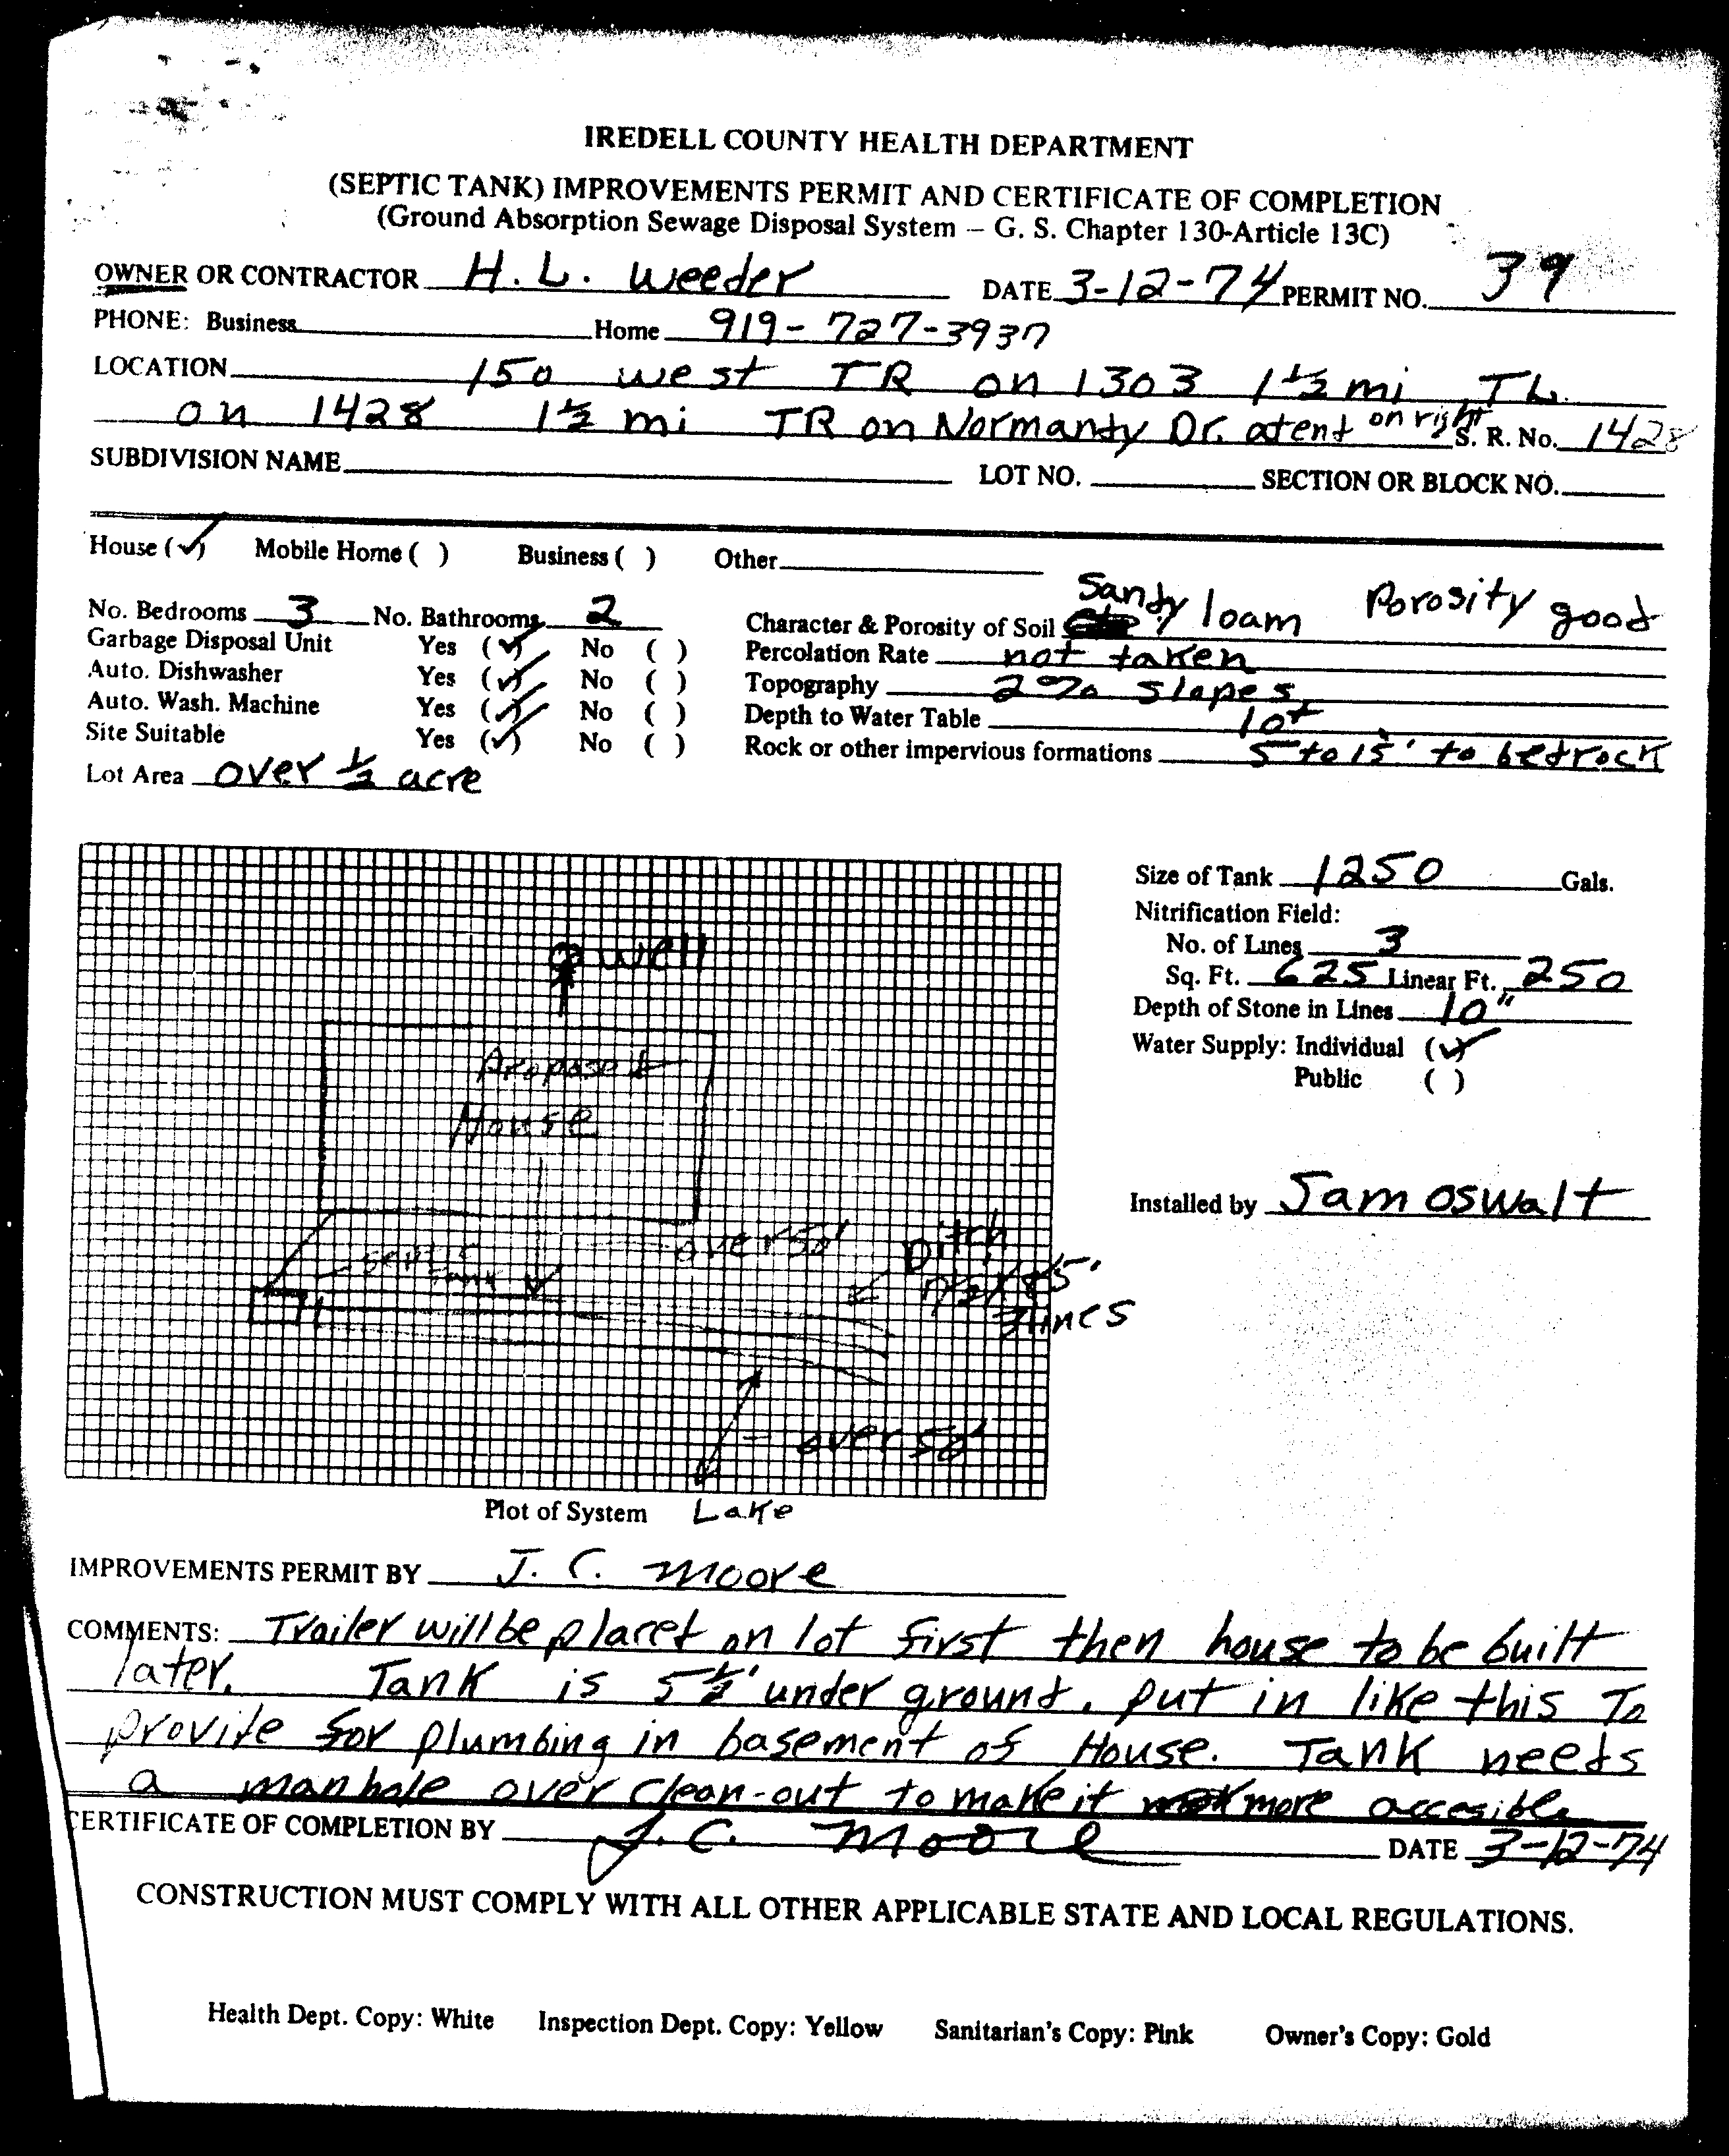 IREDELL COUNTY HEALTH DEPARTMENT
(SEPTIC TANK) IMPROVEMENTS PERMIT AND CERTIFICATE OF COMPLETION
(Ground Absorption Sewage Disposal System – G. S. Chapter 130-Article 13C)
OWNER OR CONTRACTOR H. L. Weeder DATE 3-12-74 PERMIT NO. 39
PHONE: Business Home 919-727-3937
LOCATION 150 west TR on 1303 1½ mi TL
on 1428 1½ mi TR on Normandy Dr. at end on right S. R. No. 1428
SUBDIVISION NAME LOT NO. SECTION OR BLOCK NO.
House (✓) Mobile Home ( ) Business ( ) Other
No. Bedrooms 3 No. Bathrooms 2 Character & Porosity of Soil Sandy loam Porosity good
Garbage Disposal Unit Yes (✓) No ( ) Percolation Rate not taken
Auto. Dishwasher Yes (✓) No ( ) Topography 2% slopes
Auto. Wash. Machine Yes (✓) No ( ) Depth to Water Table 10+
Site Suitable Yes (✓) No ( ) Rock or other impervious formations 5 to 15' to bedrock
Lot Area over ½ acre
Size of Tank 1250 Gals.
Nitrification Field:
No. of Lines 3
Sq. Ft. 625 Linear Ft. 250
Depth of Stone in Lines 10"
Water Supply: Individual (✓)
Public ( )
Installed by Sam Oswalt
well
Proposed
House
septic
tank
over 50'
Ditch
85'
3 lines
over 50'
Plot of System Lake
IMPROVEMENTS PERMIT BY J. C. Moore
COMMENTS: Trailer will be placed on lot first then house to be built
later. Tank is 5½' under ground, put in like this To
provide for plumbing in basement of House. Tank needs
a manhole over clean-out to make it more accesible
CERTIFICATE OF COMPLETION BY J. C. Moore DATE 3-12-74
CONSTRUCTION MUST COMPLY WITH ALL OTHER APPLICABLE STATE AND LOCAL REGULATIONS.
Health Dept. Copy: White Inspection Dept. Copy: Yellow Sanitarian's Copy: Pink Owner's Copy: Gold